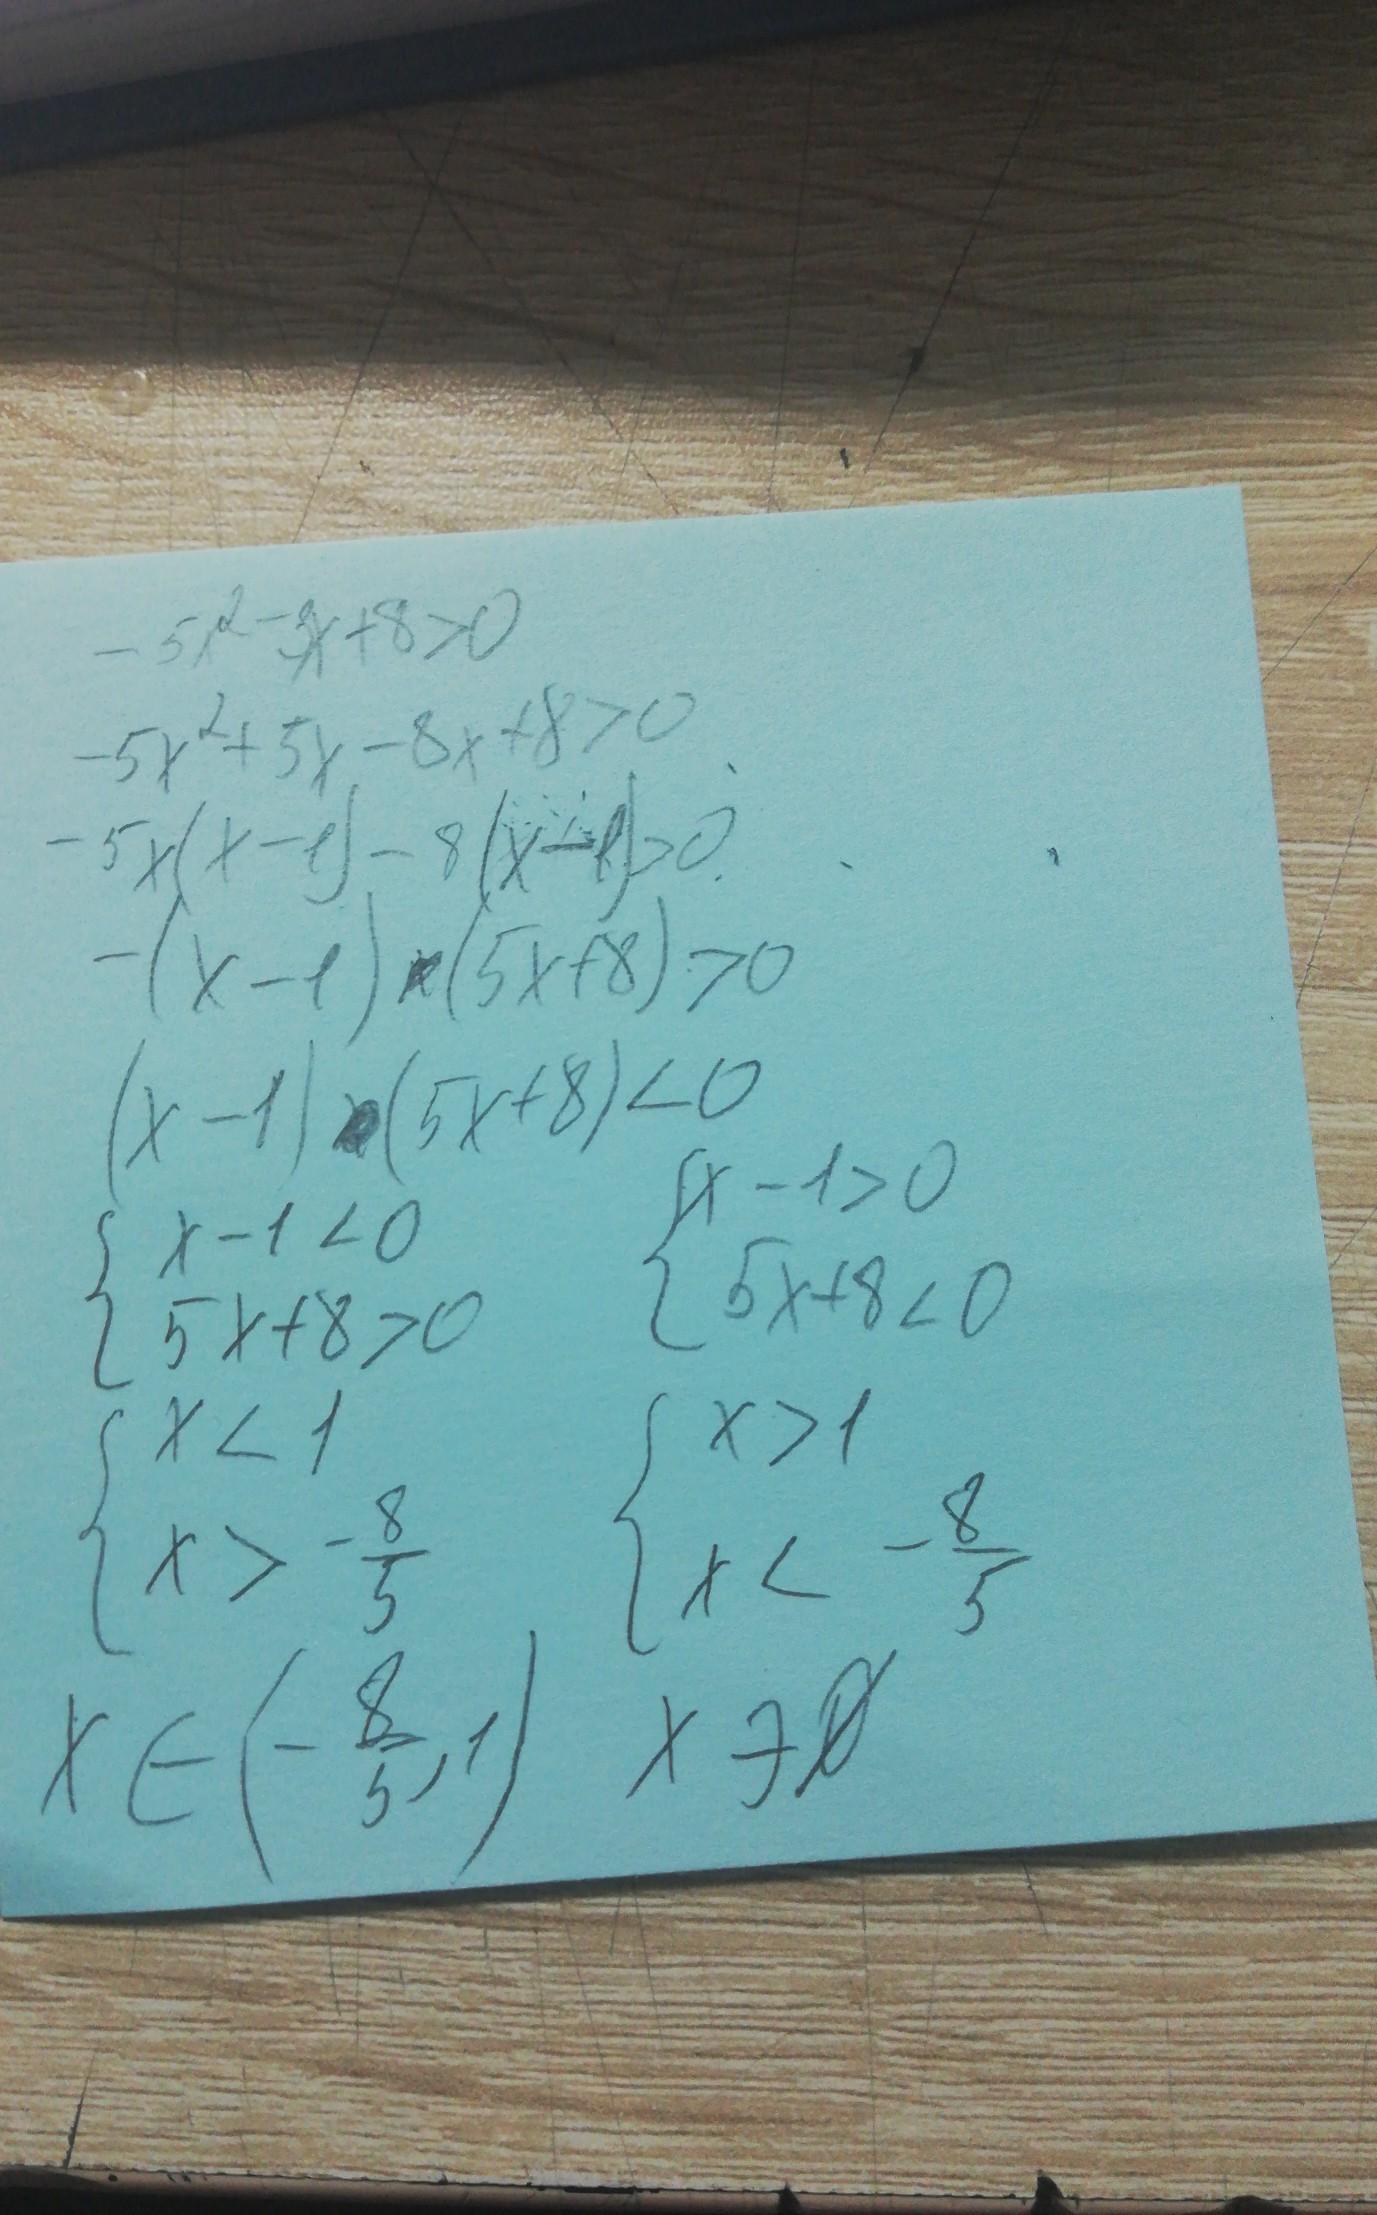 -5x²-3x+8>0
-5x²+5x-8x+8>0
-5x(x-1)-8(x-1)>0
-(x-1)·(5x+8)>0
(x-1)·(5x+8)<0
{ x-1<0 { x-1>0
{ 5x+8>0 { 5x+8<0
{ x<1 { x>1
{ x>-8/5 { x<-8/5
x∈(-8/5,1) x∋∅